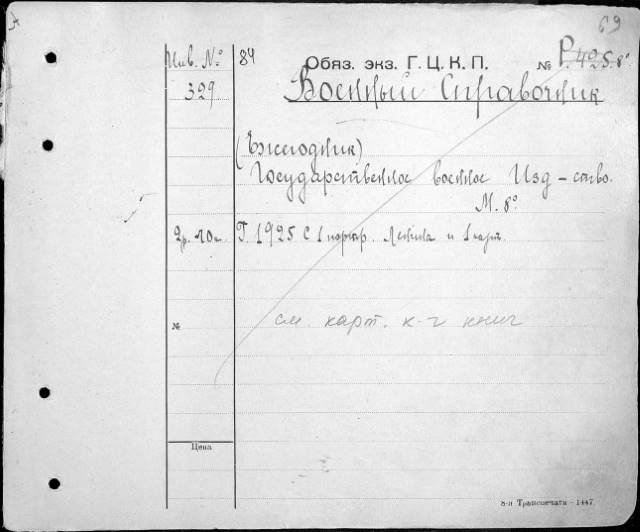 А
69
Инв. № 84 Обяз. экз. Г.Ц.К.П. № Р.425.8º
329 Военный Справочник
(Ежегодник)
Государственное военное Изд-ство.
М. 8º
2р. 10к. Г. 1925 С 1 портр. Ленина и 1 карт.
№ см. карт. к-г книг
Цена
8-я Транспечати - 1447.